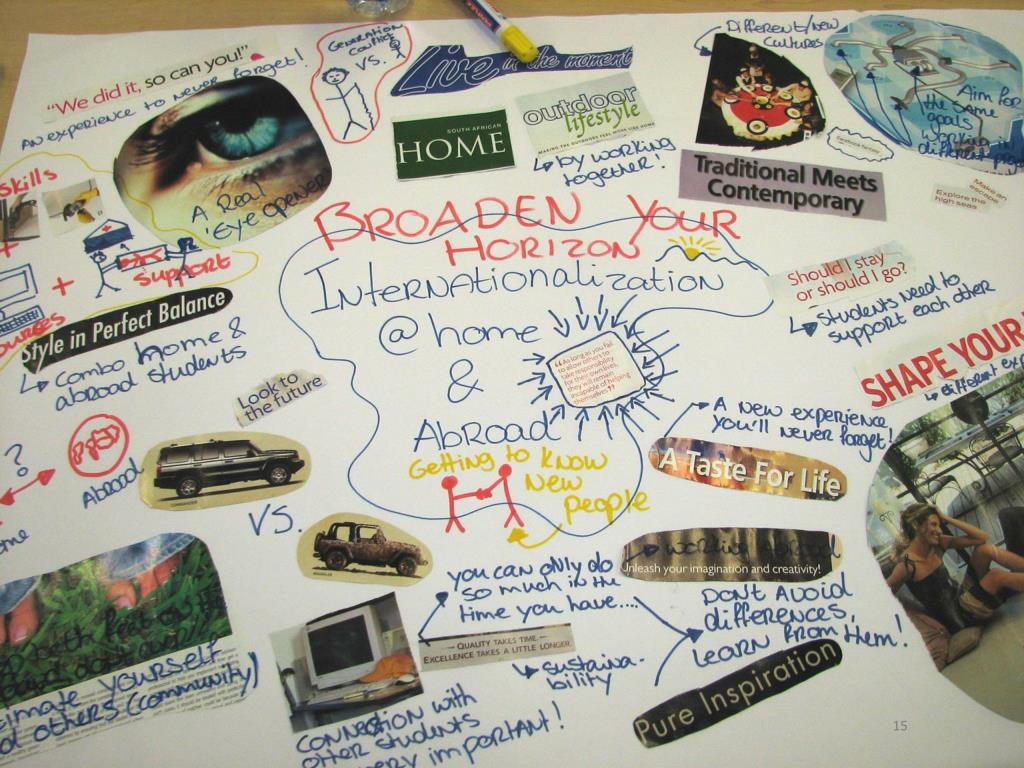 "We did it, so can you!"
AN EXPERIENCE TO NEVER forget!
A Real
'Eye opener'
GENERATION
CONFLICT
VS.
Live in the moment
SOUTH AFRICAN
HOME
outdoor
lifestyle
MAKING THE OUTDOORS FEEL MORE LIKE HOME
by working
together!
Different/new
cultures
Aim for
the same
goals
Working
different
Traditional Meets
Contemporary
Make an
escape
Explore the
high seas
Skills
+
+
SUPPORT
Style in Perfect Balance
Combo home &
abroad students
BROADEN YOUR
HORIZON
Internationalization
@ home
&
Abroad
"As long as you fail
to allow others to
take responsibility
for their own lives,
they will remain
incapable of helping
themselves"
Getting to know
New
people
Should I stay
or should I go?
Students need to
support each other
SHAPE YOUR
different
Look to
the future
?
Abroad
VS.
A new experience
you'll never forget!
A Taste For Life
Working Abroad
Unleash your imagination and creativity!
you can only do
so much in the
time you have....
QUALITY TAKES TIME.
EXCELLENCE TAKES A LITTLE LONGER.
sustaina-
bility
Don't Avoid
differences,
learn from them!
Pure Inspiration
yourself
others (community)
Connection with
other students
very important!
15